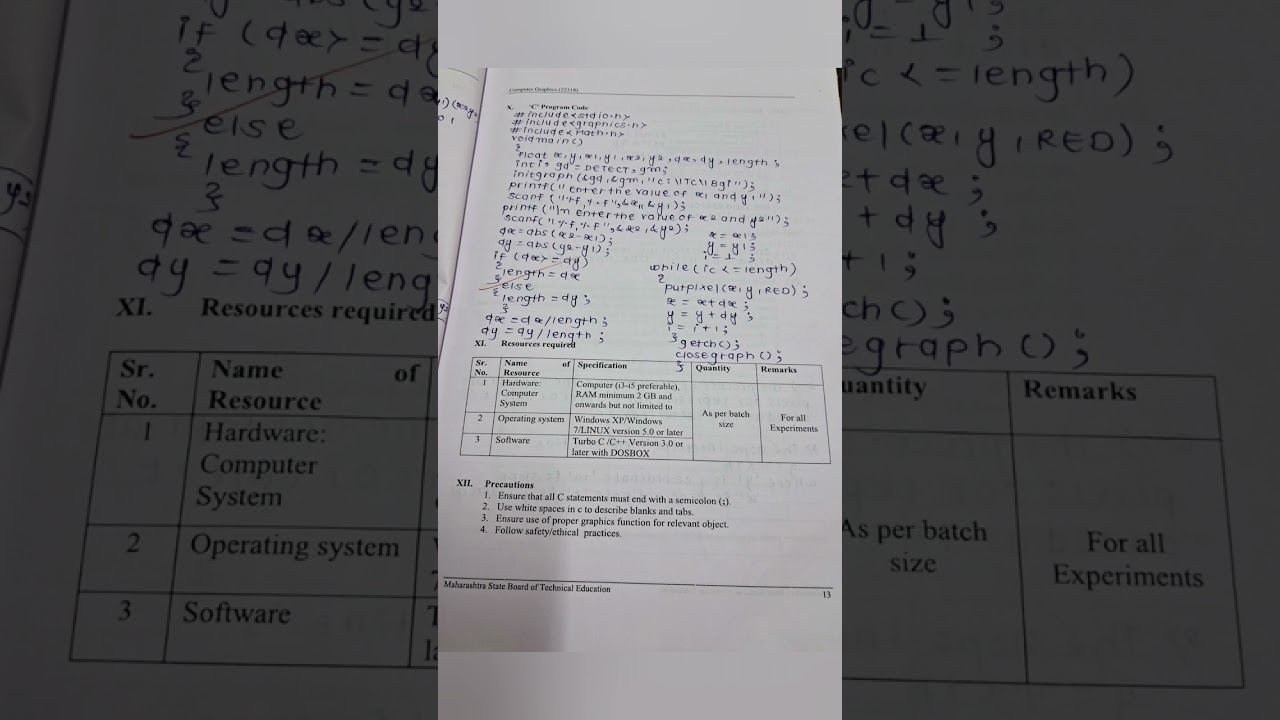 Computer Graphics (22318)
X. 'C' Program Code
#include<stdio.h>
#include<graphics.h>
#include<Math.h>
void main()
{
float x,y,x1,y1,x2,y2,dx,dy,length;
int i, gd = DETECT, gm;
initgraph(&gd,&gm,"c:\\TC\\Bgi");
printf("enter the value of x1 and y1");
scanf("%f,%f",&x1,&y1);
printf("\n enter the value of x2 and y2");
scanf("%f,%f",&x2,&y2);
dx=abs(x2-x1);
dy=abs(y2-y1);
if(dx>=dy)
{
length=dx
}
else
{
length=dy;
}
dx=dx/length;
dy=dy/length;
x=x1;
y=y1;
i=1;
while(i<=length)
{
putpixel(x,y,RED);
x=x+dx;
y=y+dy;
i=i+1;
}
getch();
closegraph();
}
XI. Resources required
Sr. No. Name of Resource Specification Quantity Remarks
1 Hardware: Computer System Computer (i3-i5 preferable), RAM minimum 2 GB and onwards but not limited to As per batch size For all Experiments
2 Operating system Windows XP/Windows 7/LINUX version 5.0 or later
3 Software Turbo C /C++ Version 3.0 or later with DOSBOX
XII. Precautions
1. Ensure that all C statements must end with a semicolon (;).
2. Use white spaces in c to describe blanks and tabs.
3. Ensure use of proper graphics function for relevant object.
4. Follow safety/ethical practices.
Maharashtra State Board of Technical Education
13